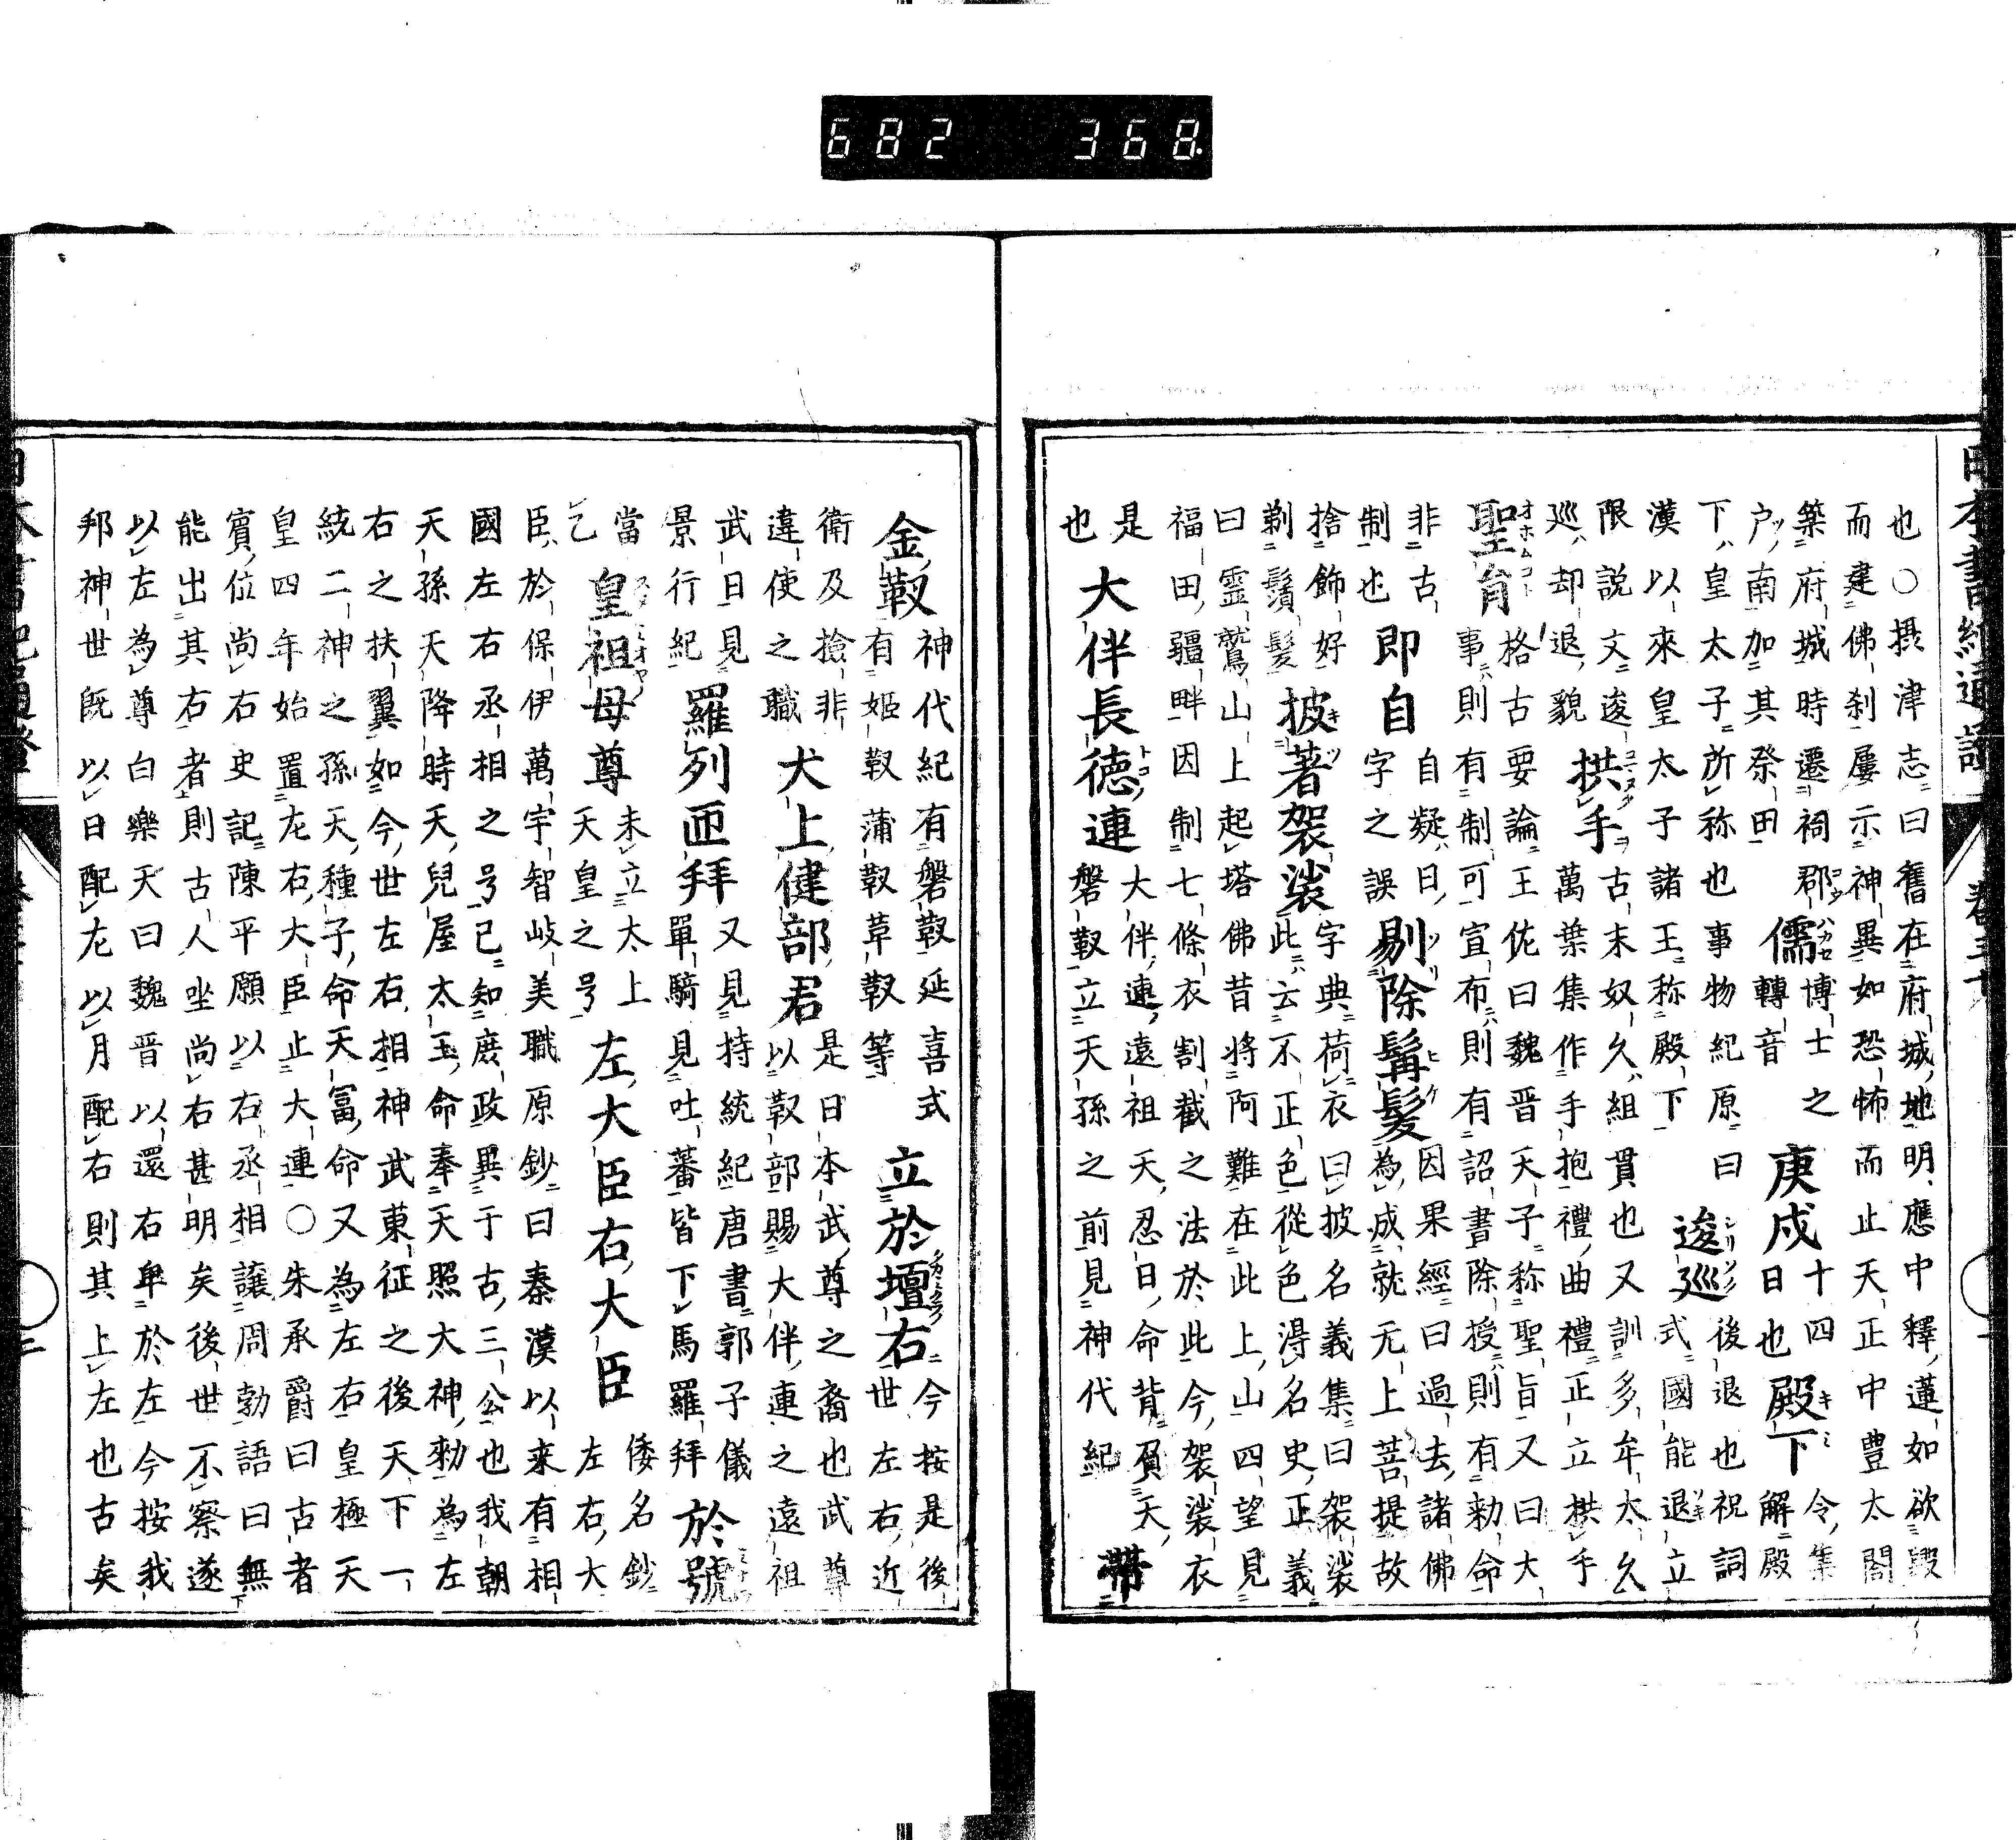 682 368
日本書紀通證
也○摂津志曰舊在府城地明應中釋蓮如欲毀
而建佛刹屢示神異如恐怖而止天正中豊太閤
築府城時遷祠郡 儒 博士之 庚戌 十四 殿下 令集
戸南加其祭田 轉音 日也 解殿
下皇太子所称也事物紀原曰 逡巡 後退也祝詞
漢以來皇太子諸王称殿下 式國能退立
限説文逡 拱手 古末奴久組貫也又訓多牟太久
巡却退貌 萬葉集作手抱禮曲禮正立拱手
聖旨 格古要論王佐曰魏晋天子称聖旨又曰大
事則有制可宣布則有詔書除授則有勅命
非古 即自 自疑日 剔除髯髪 因果經曰過去諸佛
制也 字之誤 為成就无上菩提故
捨飾好 披著袈裟 字典荷衣曰披名義集曰袈裟
剃鬚髪 此云不正色從色得名史正義
曰靈鷲山上起塔佛昔將阿難在此上山四望見
福田疆畔因制七條衣割截之法於此今袈裟衣
是 大伴長徳連 大伴連遠祖天忍日命背負天 帯
也 磐靫立天孫之前見神代紀
金靫 神代紀有磐靫延喜式 立於壇右 今按是後
有姫靫蒲靫草靫等 世左右近
衛及撿非 犬上健部君 是日本武尊之裔也武尊
違使之職 以靫部賜大伴連之遠祖
武日見 羅列匝拜 又見持統紀唐書郭子儀 於號
景行紀 單騎見吐蕃皆下馬羅拜
當 皇祖母尊 未立太上 左大臣右大臣 倭名鈔
乙 天皇之号 左右大
臣於保伊萬宇智岐美職原鈔曰秦漢以来有相
國左右丞相之号已知庶政異于古三公也我朝
天孫天降時天兒屋太玉命奉天照大神勅為左
右之扶翼如今世左右相神武東征之後天下一
統二神之孫天種子命天冨命又為左右皇極天
皇四年始置左右大臣止大連○朱承爵曰古者
賓位尚右史記陳平願以右丞相譲周勃語曰無
能出其右者則古人坐尚右甚明矣後世不察遂
以左為尊白樂天曰魏晋以還右卑於左今按我
邦神世既以日配左以月配右則其上左也古矣
日本書紀通證